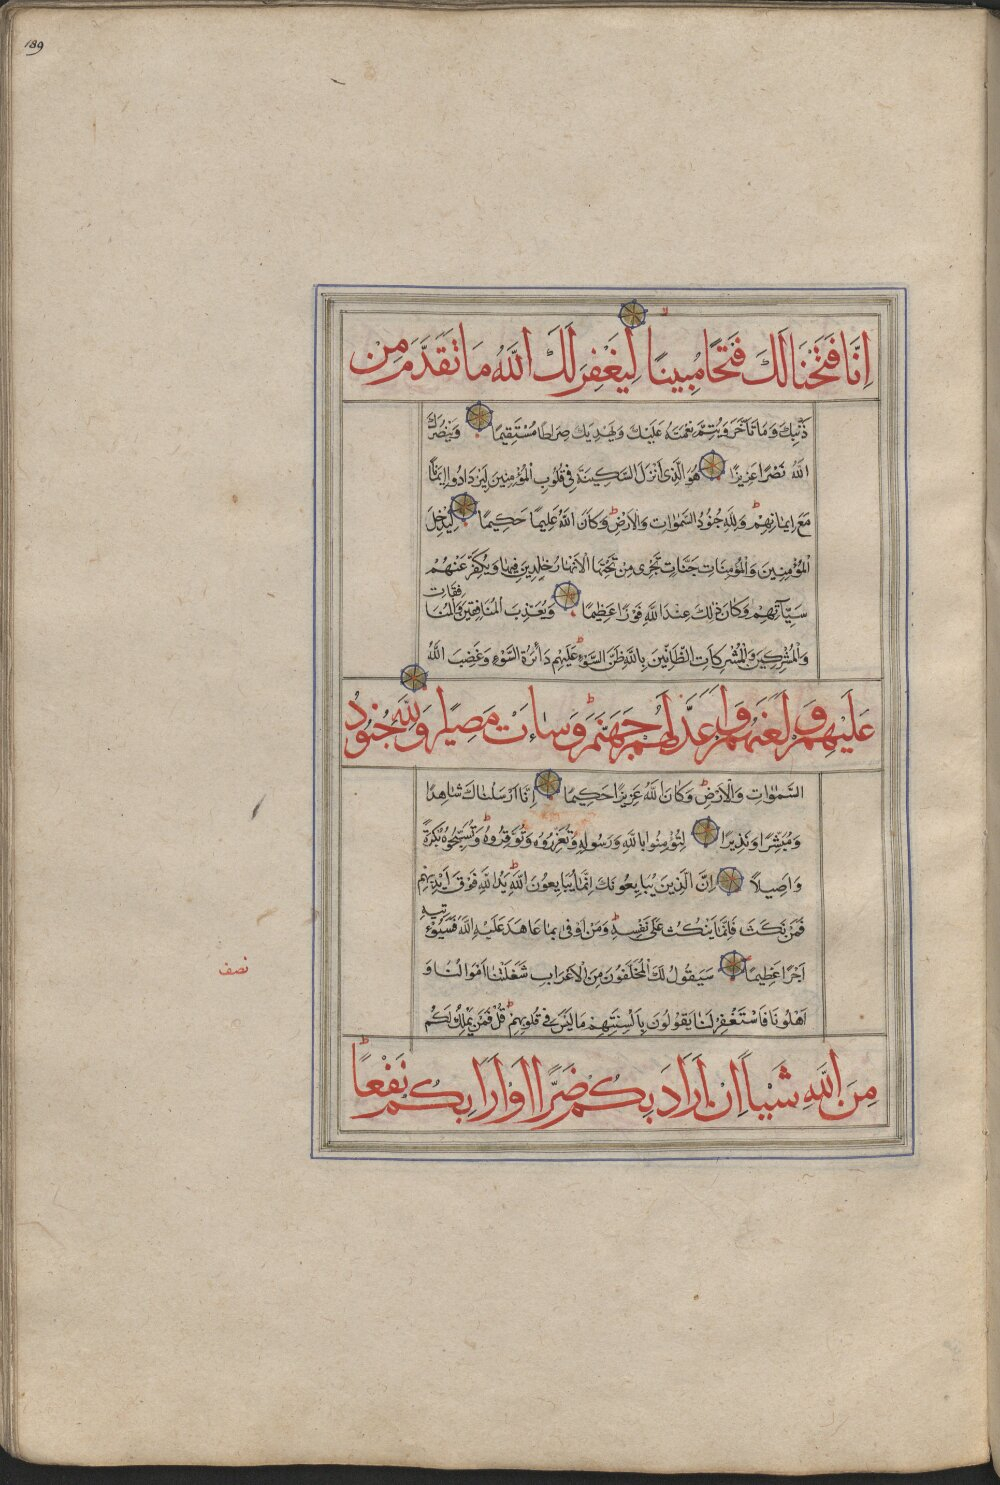 189
اِنَّا فَتَحْنَا لَكَ فَتْحًا مُبِينًا لِيَغْفِرَ لَكَ اللَّهُ مَا تَقَدَّمَ مِنْ
ذَنْبِكَ وَمَا تَاَخَّرَ وَيُتِمَّ نِعْمَتَهُ عَلَيْكَ وَيَهْدِيَكَ صِرَاطًا مُسْتَقِيمًا وَيَنْصُرَكَ
اللَّهُ نَصْرًا عَزِيزًا هُوَ الَّذِى اَنْزَلَ السَّكِينَةَ فِى قُلُوبِ الْمُؤْمِنِينَ لِيَزْدَادُوا اِيمَانًا
مَعَ اِيمَانِهِمْ وَلِلَّهِ جُنُودُ السَّمٰوَاتِ وَالْاَرْضِ وَكَانَ اللَّهُ عَلِيمًا حَكِيمًا لِيُدْخِلَ
الْمُؤْمِنِينَ وَالْمُؤْمِنَاتِ جَنَّاتٍ تَجْرِى مِنْ تَحْتِهَا الْاَنْهَارُ خٰلِدِينَ فِيهَا وَيُكَفِّرَ عَنْهُمْ
سَيِّآتِهِمْ وَكَانَ ذٰلِكَ عِنْدَ اللَّهِ فَوْزًا عَظِيمًا وَيُعَذِّبَ الْمُنَافِقِينَ وَالْمُنَا
فِقَاتِ
وَالْمُشْرِكِينَ وَالْمُشْرِكَاتِ الظَّانِّينَ بِاللَّهِ ظَنَّ السَّوْءِ عَلَيْهِمْ دَائِرَةُ السَّوْءِ وَغَضِبَ اللَّهُ
عَلَيْهِمْ وَلَعَنَهُمْ وَاَعَدَّ لَهُمْ جَهَنَّمَ وَسَاءَتْ مَصِيرًا وَلِلَّهِ جُنُودُ
السَّمٰوَاتِ وَالْاَرْضِ وَكَانَ اللَّهُ عَزِيزًا حَكِيمًا اِنَّا اَرْسَلْنَاكَ شَاهِدًا
وَمُبَشِّرًا وَنَذِيرًا لِتُؤْمِنُوا بِاللَّهِ وَرَسُولِهِ وَتُعَزِّرُوهُ وَتُوَقِّرُوهُ وَتُسَبِّحُوهُ بُكْرَةً
وَاَصِيلًا اِنَّ الَّذِينَ يُبَايِعُونَكَ اِنَّمَا يُبَايِعُونَ اللَّهَ يَدُ اللَّهِ فَوْقَ اَيْدِيهِمْ
فَمَنْ نَكَثَ فَاِنَّمَا يَنْكُثُ عَلٰى نَفْسِهِ وَمَنْ اَوْفٰى بِمَا عَاهَدَ عَلَيْهِ اللَّهَ فَسَيُؤْ
تِيهِ
اَجْرًا عَظِيمًا سَيَقُولُ لَكَ الْمُخَلَّفُونَ مِنَ الْاَعْرَابِ شَغَلَتْنَا اَمْوَالُنَا وَ
نصف
اَهْلُونَا فَاسْتَغْفِرْ لَنَا يَقُولُونَ بِاَلْسِنَتِهِمْ مَا لَيْسَ فِى قُلُوبِهِمْ قُلْ فَمَنْ يَمْلِكُ لَكُمْ
مِنَ اللَّهِ شَيْـًٔا اِنْ اَرَادَ بِكُمْ ضَرًّا اَوْ اَرَادَ بِكُمْ نَفْعًا